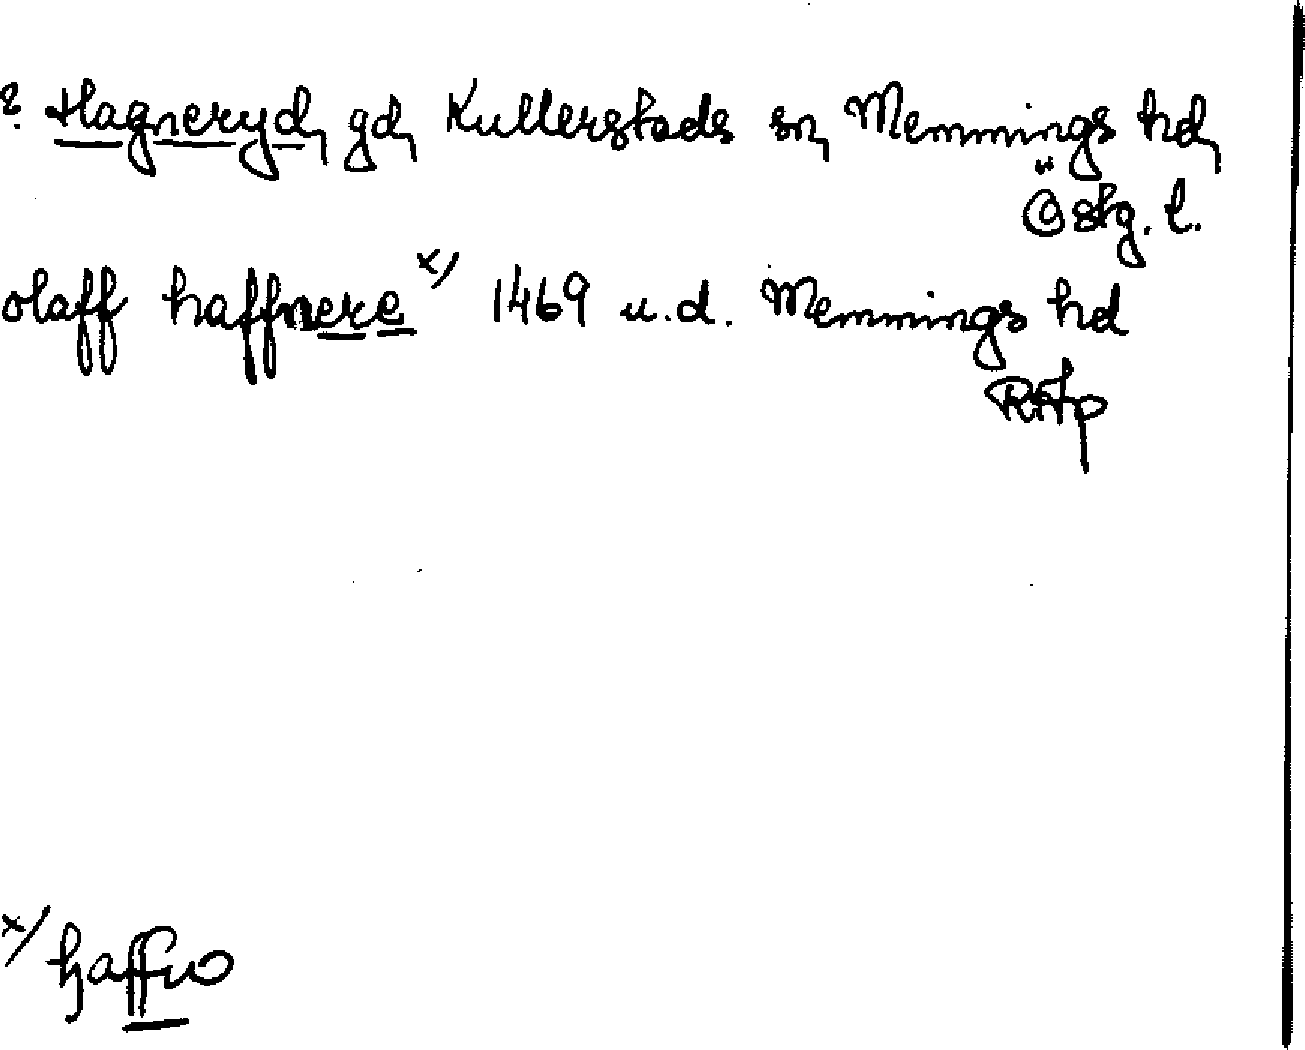 ? Hagneryd, gd, Kullerstads sn, Memmings hd,
Östg. l.
olaff haffnere x) 1469 u.d. Memmings hd
RAp
x/ haffno